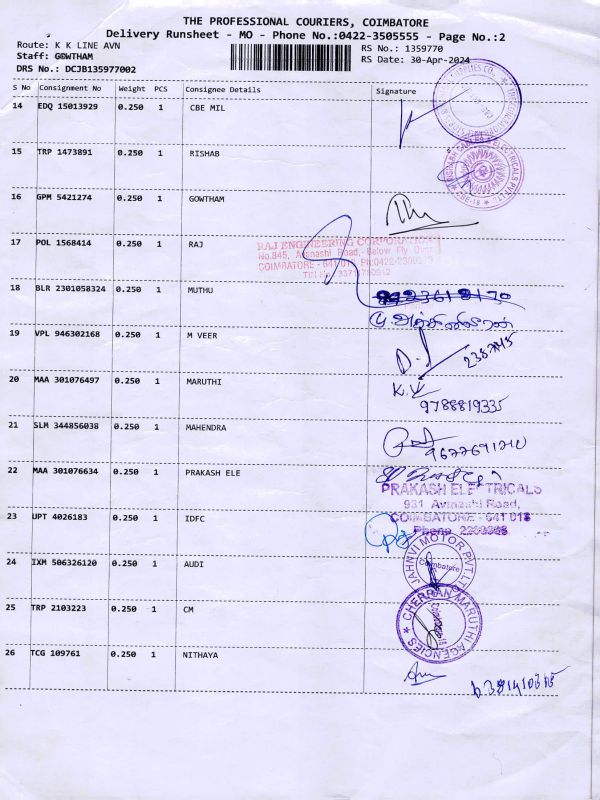 THE PROFESSIONAL COURIERS, COIMBATORE
Delivery Runsheet - MO - Phone No.:0422-3505555 - Page No.:2
Route: K K LINE AVN
RS No.: 1359770
Staff: GOWTHAM
RS Date: 30-Apr-2024
DRS No.: DCJB135977002
S No Consignment No Weight PCS Consignee Details Signature
14 EDQ 15013929 0.250 1 CBE MIL
15 TRP 1473891 0.250 1 RISHAB
16 GPM 5421274 0.250 1 GOWTHAM
17 POL 1568414 0.250 1 RAJ
RAJ ENGINEERING CORPORATION
No.845, Avinashi Road, Below Fly Over
COIMBATORE - 641
18 BLR 2301058324 0.250 1 MUTHU
19 VPL 946302168 0.250 1 M VEER
20 MAA 301076497 0.250 1 MARUTHI
K.V
9788819335
21 SLM 344856038 0.250 1 MAHENDRA
22 MAA 301076634 0.250 1 PRAKASH ELE
PRAKASH ELECTRICALS
931 Avinashi Road,
COIMBATORE - 641 018
Phone
23 UPT 4026183 0.250 1 IDFC
24 IXM 506326120 0.250 1 AUDI
JAHNVI MOTOR PVT.LTD
Coimbatore
25 TRP 2103223 0.250 1 CM
CHERRAN MARUTHI AGENCIES
26 TCG 109761 0.250 1 NITHAYA